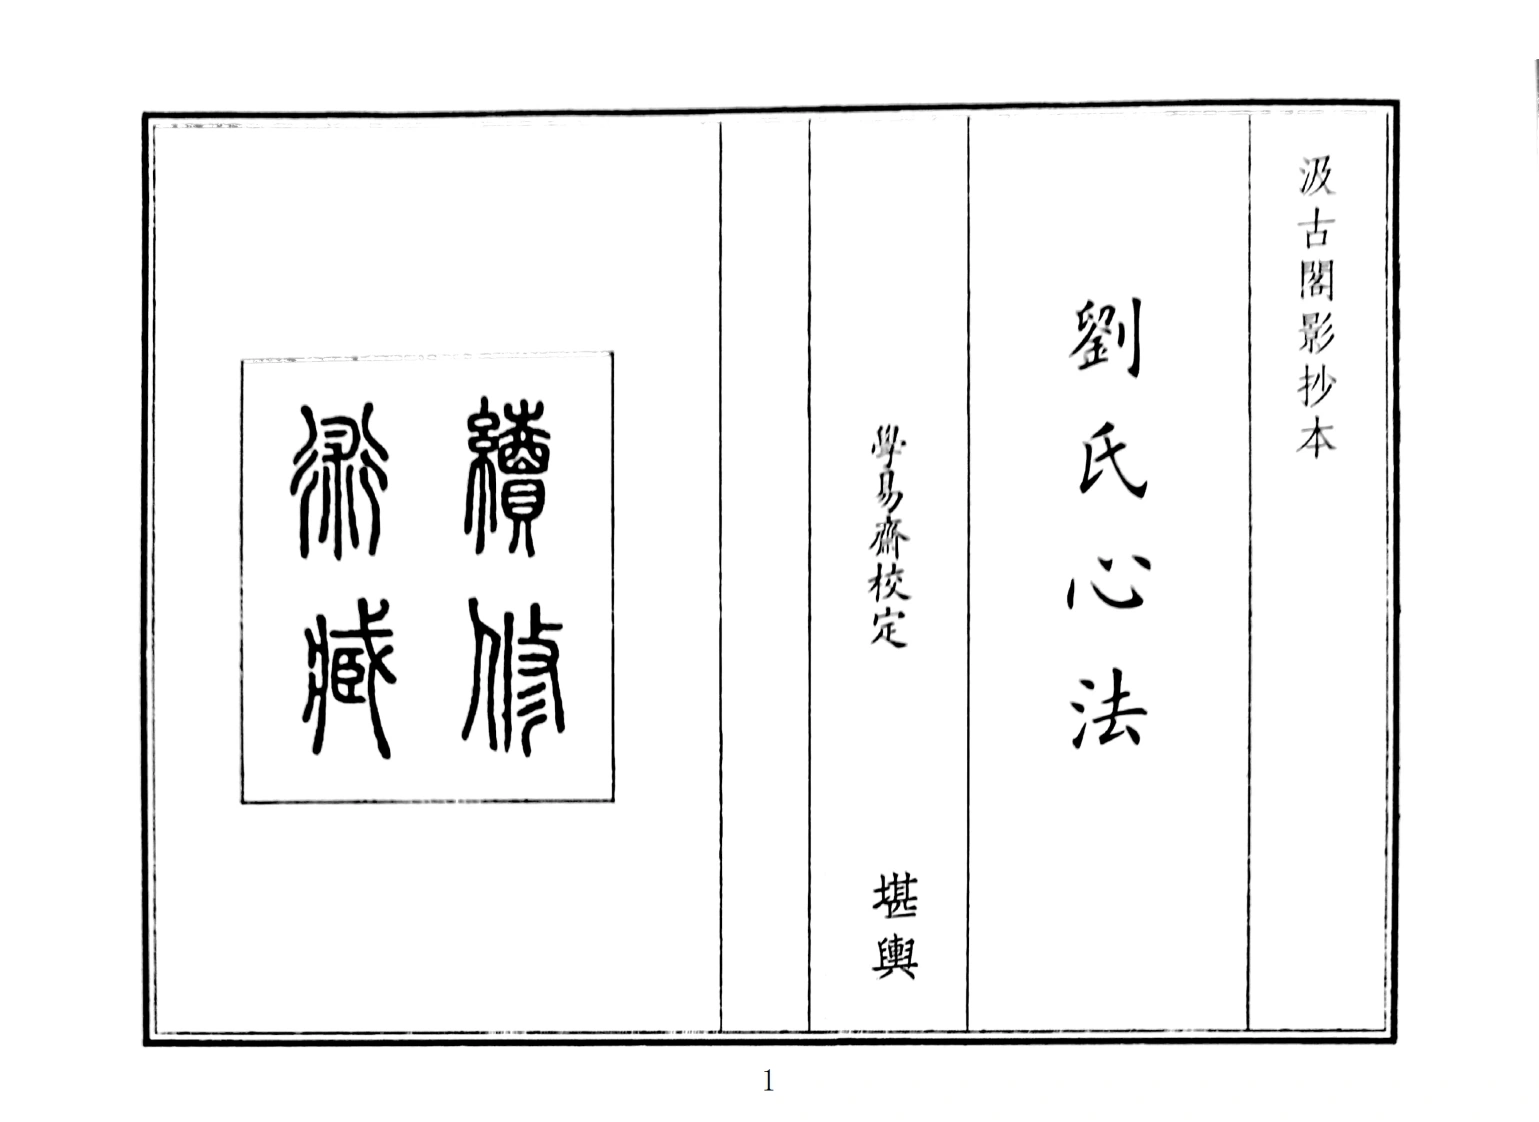 汲古閣影抄本
劉氏心法
學易齋校定
堪輿
續修
術藏
1